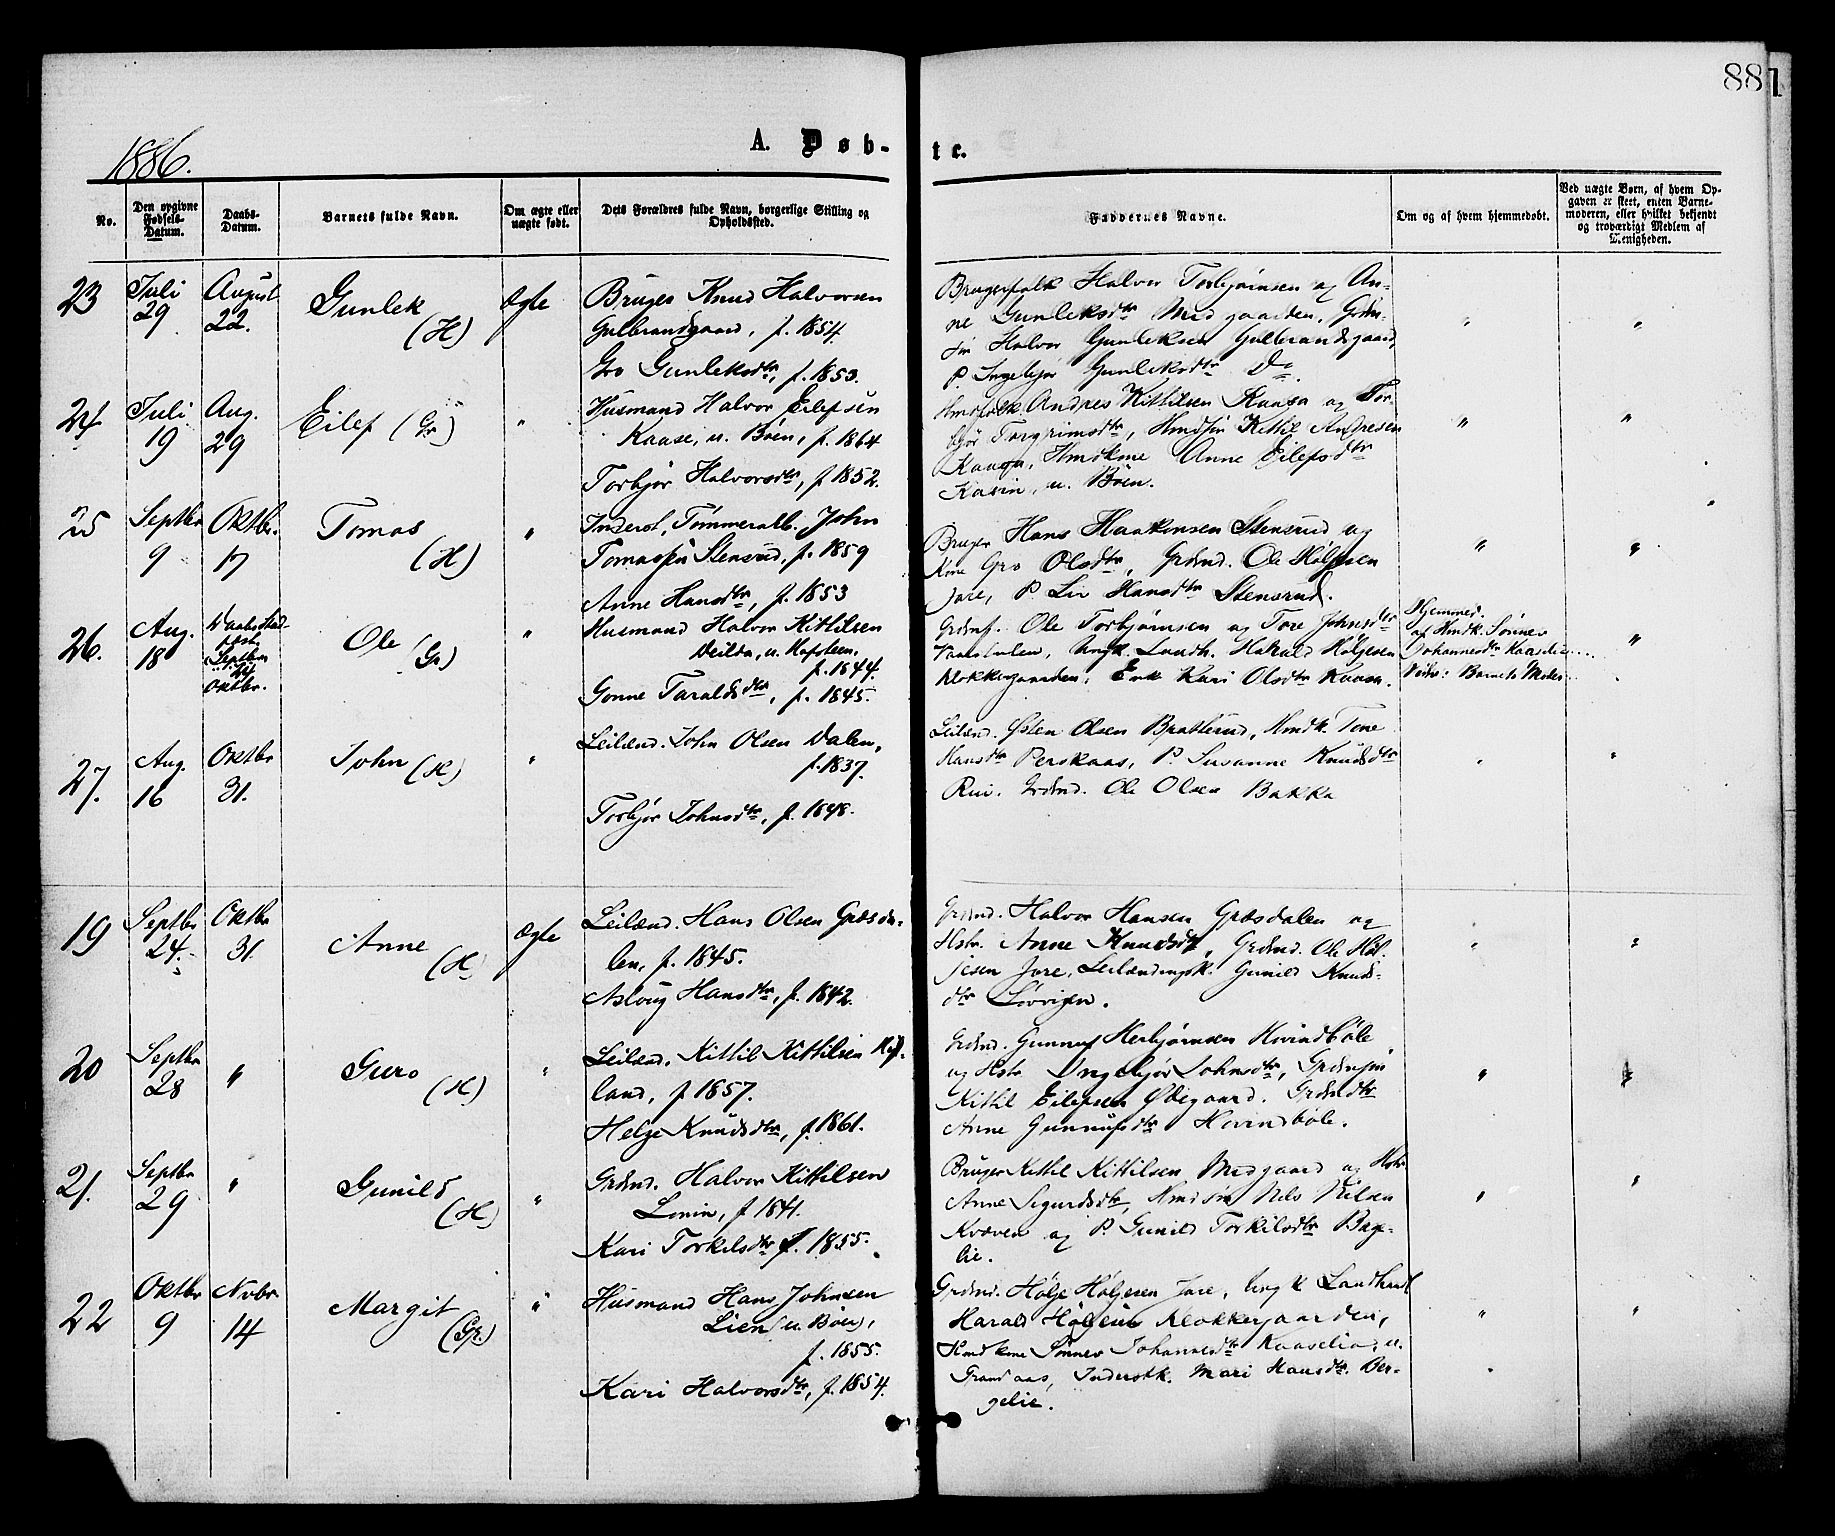 88
1886.
A. Døb-te.
No.
Den opgivne Fødsels-Datum.
Daabs-Datum.
Barnets fulde Navn.
Om ægte eller uægte født.
Dets Forældres fulde Navn, borgerlige Stilling og Opholdssted.
Faddernes Navne.
Om og af hvem hjemmedøbt.
Ved uægte Børn, af hvem Opgaven er skeet, enten Barnemoderen, eller hvilket bekjendt og troværdigt Medlem af Menigheden.
23 Juli 29 August 22. Gunlek (H) Ægte
Bruger Knud Halvorsen
Gulbrandsgaard, f. 1854.
Gro Gunleksdtr, f. 1853.
Brugerfolk Halvor Torbjørnsen og An-
ne Gunleksdtr Midgaarden, Grdm-
søn Halvor Gunleksen Gulbrandsgaard,
P. Ingebjør Gunleksdtr Do.
24 Juli 19 Aug. 29 Eilef (Gr) "
Husmand Halvor Eilefsen
Kaase, u. Bøen, f. 1864
Torbjør Halvorsdtr, f. 1852.
Hmdfolk Andres Kittilsen Kaasa og Tor-
bjør Torgrimsdtr, Hmdsøn Kittil Andresen
Kaasa, Hmdkone Anne Eilefsdtr
Kasin, u. Bøen.
25 Septbr 9 Oktbr. 17 Tomas (H) "
Inderst, Tømmerarb. John
Tomassen Stensrud, f. 1859
Anne Hansdtr, f. 1853
Bruger Hans Haakonsen Stensrud og
Kone Gro Olsdtr, Grdmd. Ole Høljesen
Jore, P. Liv Hansdtr Stensrud.
26. Aug. 18 Daabsstad. Septbr Oktbr. Ole (Gr) "
Husmand Halvor Kittilsen
Veilda, u. Hafsteen.
f. 1844.
Gonne Taraldsdtr, f. 1845.
Grdmf. Ole Torbjørnsen og Tore Johnsdtr
Ungk. Landh. Harald Høljesen
Klokkergaarden, Enk Kari Olsdtr Kaasa.
Hjemmed.
af Hmdk. Sønnev
Johannesdtr Kaaselia
Vidne: Barnets Moder
27. Aug. 16 Oktbr 31. John (H) "
Leilænd. John Olsen Dalen,
f. 1837.
Torbjør Johnsdtr, f. 1848.
Leilænd. Østen Olsen Bratterud, Hmdk. Tone
Hansdtr Perskaas, P. Susanne Knudsdtr
Rui. Grdmd. Ole Olsen Bakka
19 Septbr 24. Oktbr 31. Anne (H) Ægte
Leilænd. Hans Olsen Græsda-
len, f. 1845.
Aslaug Hansdtr, f. 1842.
Grdmd. Halvor Hansen Græsdalen og
Hstr. Anne Knudsdtr, Grdmd. Ole Høl-
jesen Jore, Leilændingsk. Gunild Knuds-
dtr Løvrigen.
20 Septbr 28 " Guro (H) "
Leilænd. Kittil Kittilsen
land, f. 1857.
Helge Knudsdtr, f. 1861.
Grdmd. Gunnuf Herbjørnsen Hovindbøle
og Hstr Ingebjør Johnsdtr, Grdmsøn
Kittil Eilefsen Ødegaard. Grdmdtr
Anne Gunnufsdtr Hovindbøle.
21. Septbr 29 " Gunild (H) "
Grdmd. Halvor Kittilsen
Lonin, f. 1841.
Kari Torkilsdtr f. 1855.
Bruger Kittil Kittilsen Midgaard og Hstr
Anne Sigurdsdtr, Hmdsøn Nils Nilsen
Kvæven og P. Gunild Torkilsdtr Bag-
lie.
22 Oktbr 9 Nvbr 14 Margit (Gr.) "
Husmand Hans Johnsen
Lien (u. Bøen),
f. 1855.
Kari Halvorsdtr, f. 1854.
Grdmd. Hølje Høljesen Jore, Ungk Landhandl
Harald Høljesen Klokkergaarden,
Hmdkone Sønnev Johannesdtr Kaaselia, u.
Grand aas, Inderstk. Mari Hansdtr. Ber-
gelie.